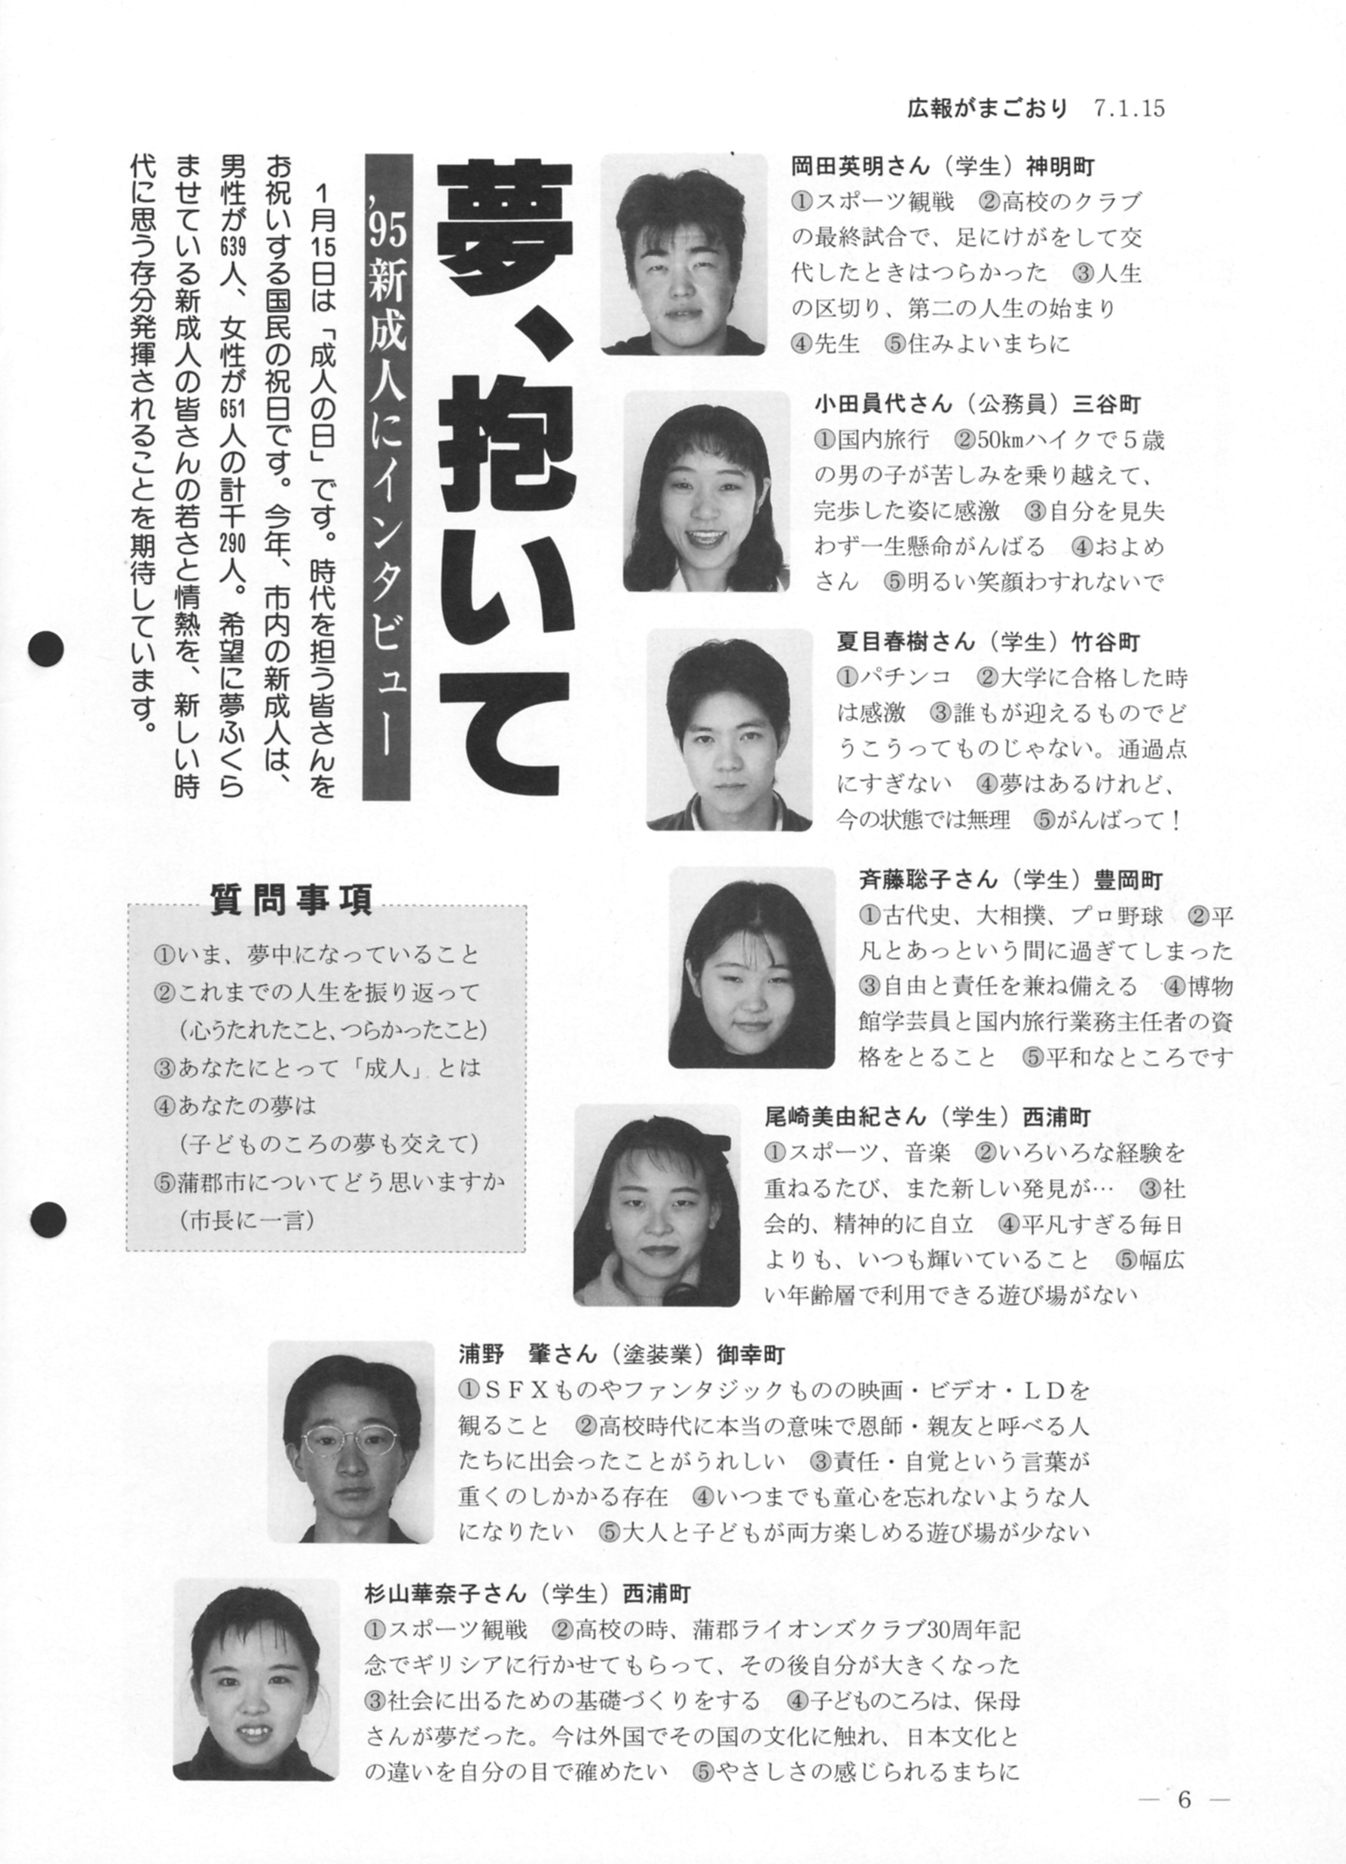 広報がまごおり 7.1.15
夢、抱いて
’95新成人にインタビュー
1月15日は「成人の日」です。時代を担う皆さんを
お祝いする国民の祝日です。今年、市内の新成人は、
男性が639人、女性が651人の計千290人。希望に夢ふくら
ませている新成人の皆さんの若さと情熱を、新しい時
代に思う存分発揮されることを期待しています。
質問事項
①いま、夢中になっていること
②これまでの人生を振り返って
(心うたれたこと、つらかったこと)
③あなたにとって「成人」とは
④あなたの夢は
(子どものころの夢も交えて)
⑤蒲郡市についてどう思いますか
(市長に一言)
岡田英明さん(学生)神明町
①スポーツ観戦 ②高校のクラブ
の最終試合で、足にけがをして交
代したときはつらかった ③人生
の区切り、第二の人生の始まり
④先生 ⑤住みよいまちに
小田員代さん(公務員)三谷町
①国内旅行 ②50㎞ハイクで5歳
の男の子が苦しみを乗り越えて、
完歩した姿に感激 ③自分を見失
わず一生懸命がんばる ④およめ
さん ⑤明るい笑顔わすれないで
夏目春樹さん(学生)竹谷町
①パチンコ ②大学に合格した時
は感激 ③誰もが迎えるものでど
うこうってものじゃない。通過点
にすぎない ④夢はあるけれど、
今の状態では無理 ⑤がんばって!
斉藤聡子さん(学生)豊岡町
①古代史、大相撲、プロ野球 ②平
凡とあっという間に過ぎてしまった
③自由と責任を兼ね備える ④博物
館学芸員と国内旅行業務主任者の資
格をとること ⑤平和なところです
尾崎美由紀さん(学生)西浦町
①スポーツ、音楽 ②いろいろな経験を
重ねるたび、また新しい発見が… ③社
会的、精神的に自立 ④平凡すぎる毎日
よりも、いつも輝いていること ⑤幅広
い年齢層で利用できる遊び場がない
浦野 肇さん(塗装業)御幸町
①SFXものやファンタジックものの映画・ビデオ・LDを
観ること ②高校時代に本当の意味で恩師・親友と呼べる人
たちに出会ったことがうれしい ③責任・自覚という言葉が
重くのしかかる存在 ④いつまでも童心を忘れないような人
になりたい ⑤大人と子どもが両方楽しめる遊び場が少ない
杉山華奈子さん(学生)西浦町
①スポーツ観戦 ②高校の時、蒲郡ライオンズクラブ30周年記
念でギリシアに行かせてもらって、その後自分が大きくなった
③社会に出るための基礎づくりをする ④子どものころは、保母
さんが夢だった。今は外国でその国の文化に触れ、日本文化と
の違いを自分の目で確めたい ⑤やさしさの感じられるまちに
— 6 —